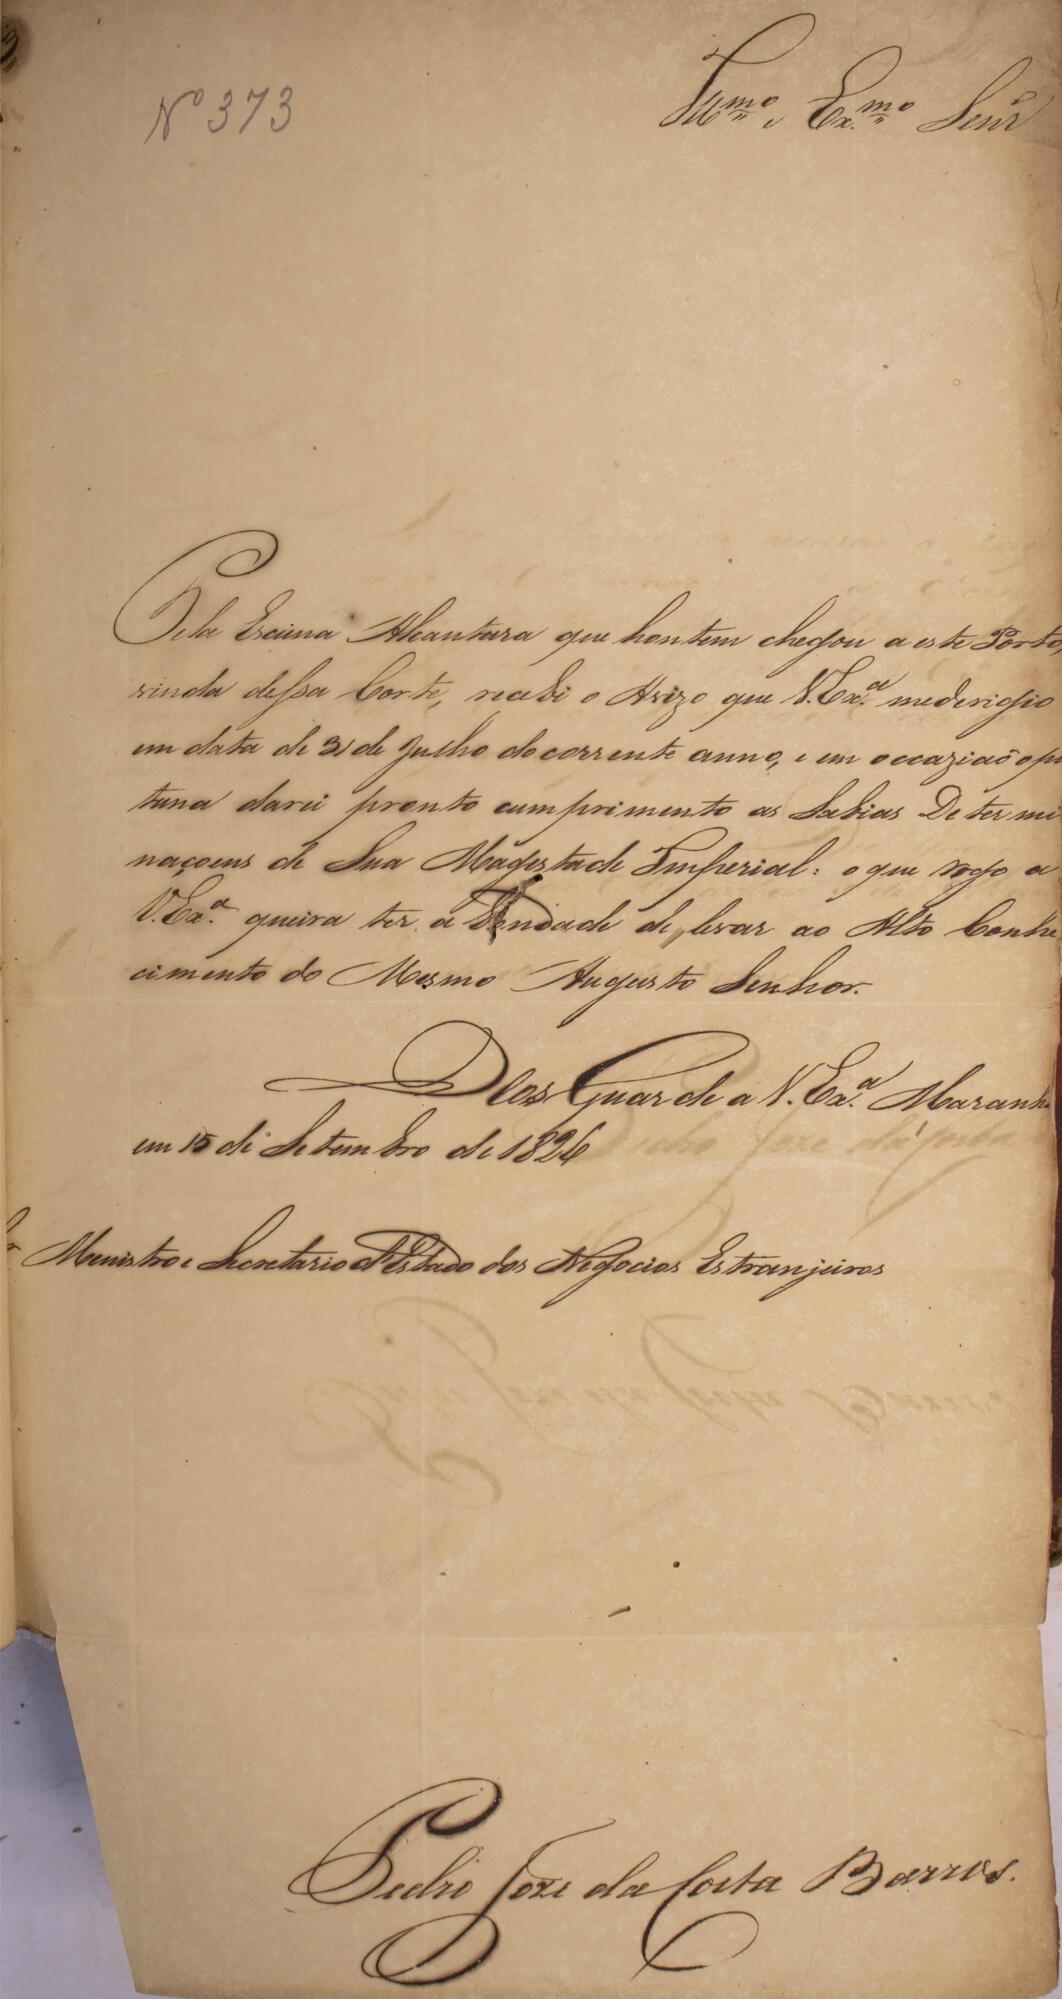 Nº 373
Illmo e Exmo Senr
Pela Escuna Alcantara que hontem chegou a este Porto,
vinda dessa Corte, recebi o Avizo que V. Exª. mederigio
em data de 31 de Julho docorrente anno, e em occaziaõ opor
tuna darei pronto cumprimento as Sabias Determi
naçoens de Sua Magestade Imperial: oque rogo a
V. Exª. queira ter a Bondade de levar ao Alto Conhe
cimento do Mesmo Augusto Senhor.
Deos Guarde a V. Exª. Maranhaõ
em 15 de Setembro de 1826
Menistro e Secretario d'Estado dos Negocios Estranjeiros
Pedro Joze da Costa Barros.